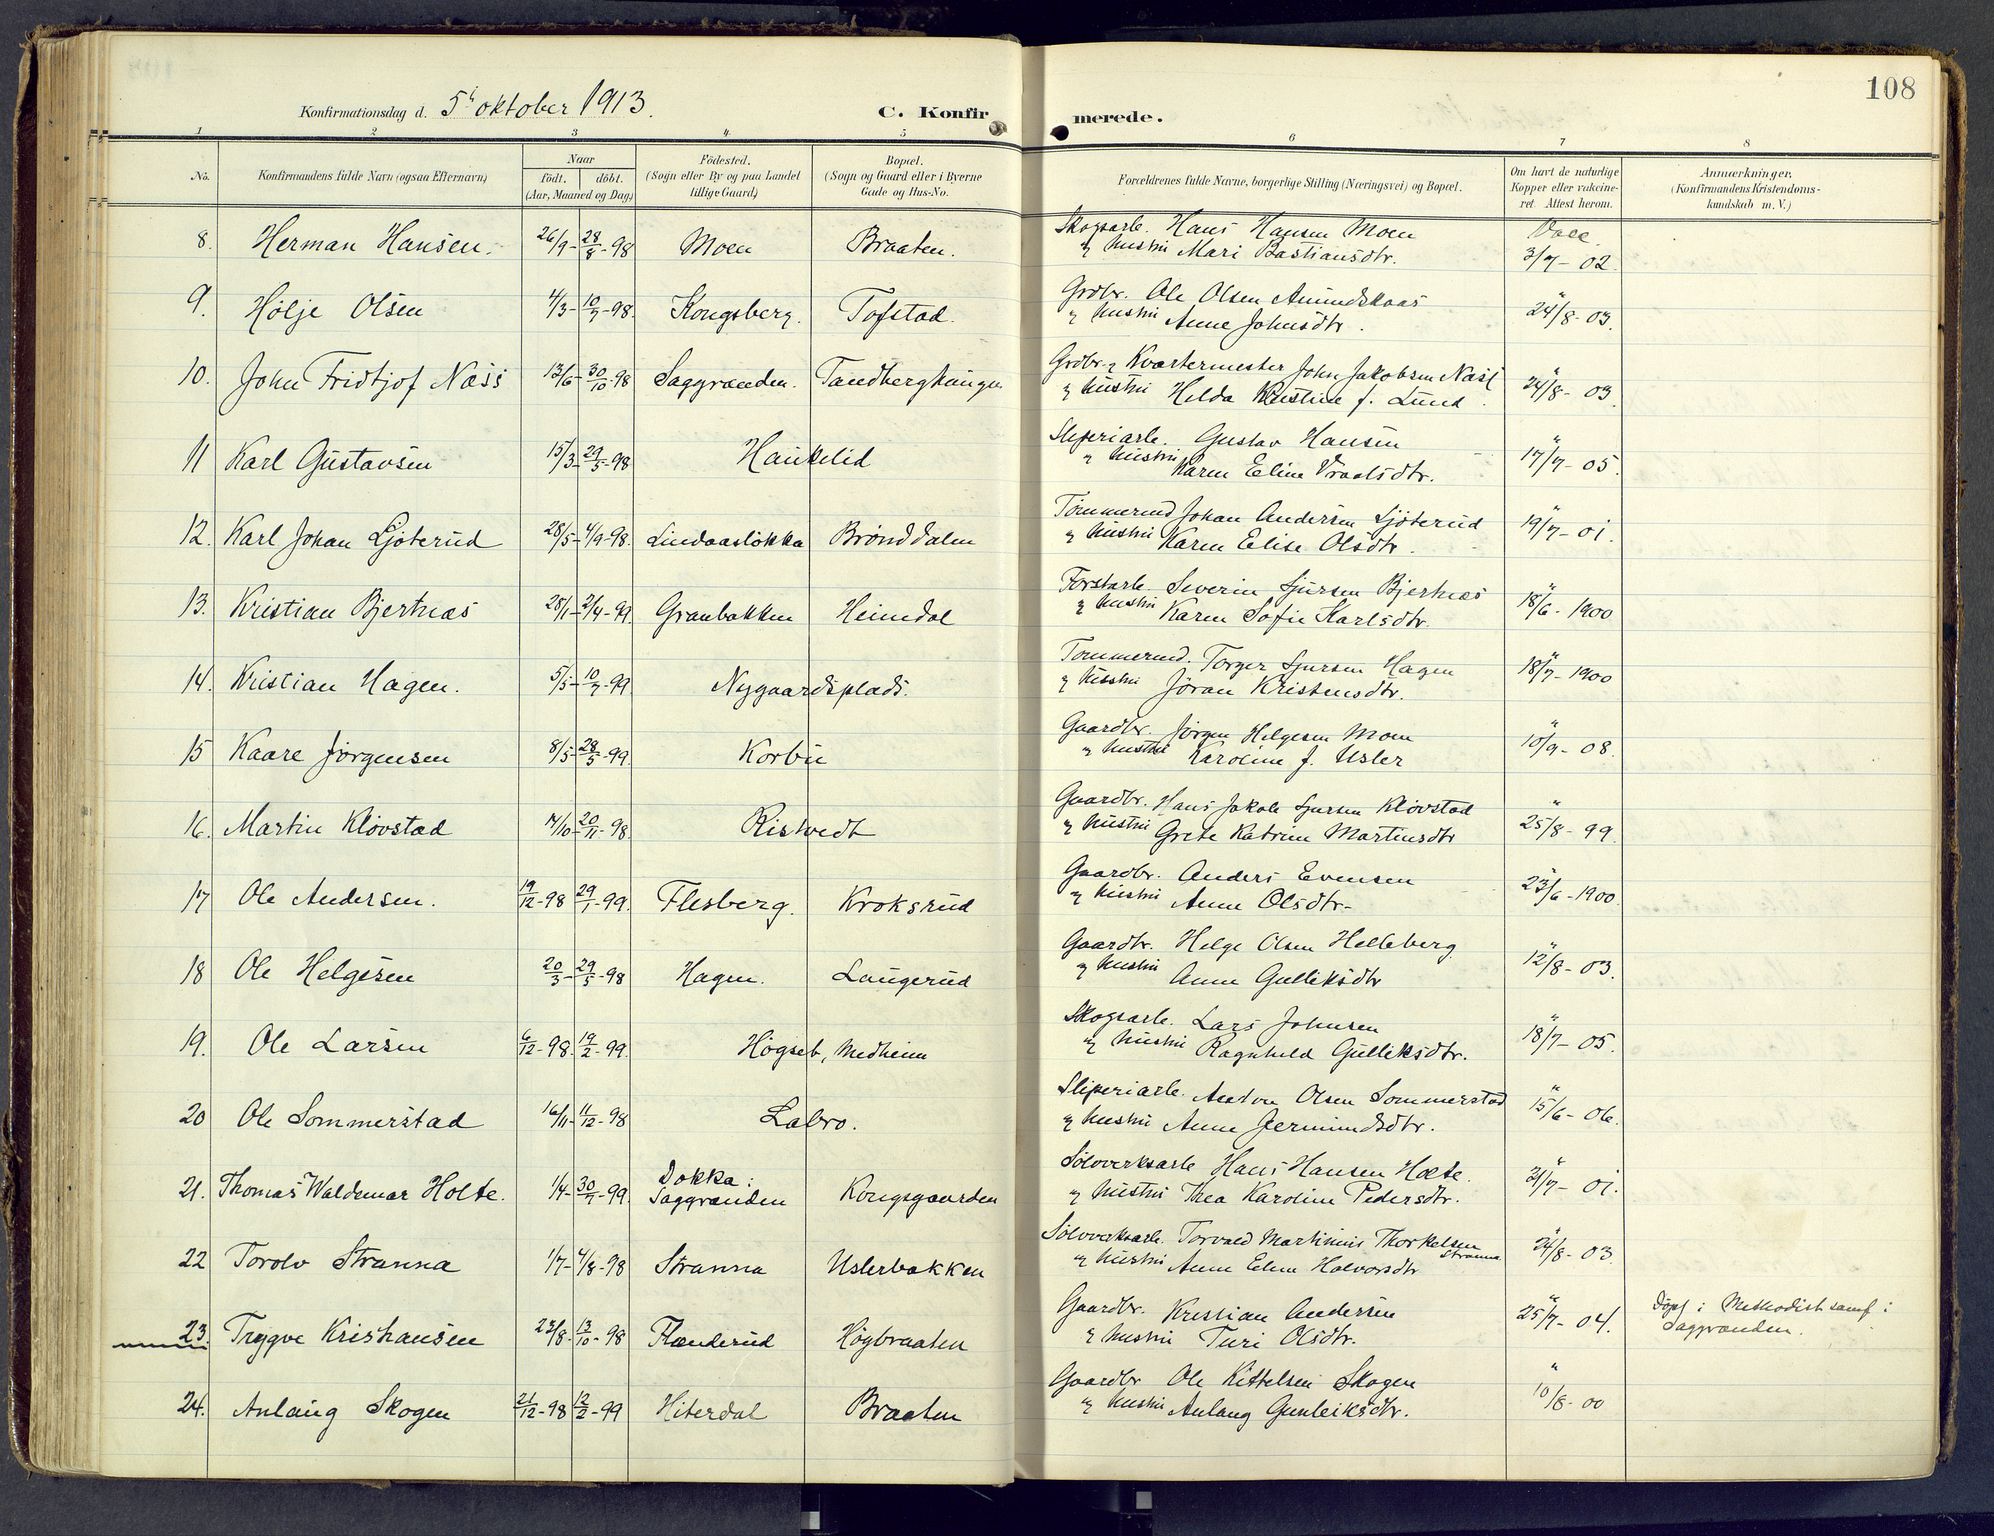 108
Konfirmationsdag d. 5t oktober 1913.
C. Konfirmerede.
1 2 3 4 5 6 7 8
No.
Konfirmandens fulde Navn (ogsaa Efternavn)
Naar
født. døbt.
(Aar, Maaned og Dag)
Födested.
(Sogn eller By og paa Landet
tillige Gaard)
Bopæl.
(Sogn og Gaard eller i Byerne
Gade og Hus-No.
Forældrenes fulde Navne, borgerlige Stilling (Næringsvei) og Bopæl.
Om havt de naturlige
Kopper eller vakcine-
ret Attest herom.
Anmærkninger.
(Konfirmandens Kristendoms-
kundskab m. V.)
8. Herman Hansen. 26/9- 28/8-98 Moen Braaten. Skogsarb. Hans Hansen Moen Vacc.
og hustru Mari Bastiansdtr. 3/7-02.
9. Hølje Olsen 4/3- 10/7-98. Kongsberg. Tofstad. Grdbr. Ole Olsen Amundskaas
og hustru Anne Johnsdtr. " 24/8-03.
10. John Fridtjof Næss 13/6- 30/10-98 Saggrenden. Grdbr. & Kvartermester John Jakobsen Næss
og hustru Helda Kristine f. Lund. " 24/8-03.
11 Karl Gustavsen 15/3- 29/5-98 Haukelid Sliperiarb. Gustav Hansen
og hustru Karen Eline Vraalsdtr. " 17/7-05.
12. Karl Johan Ljøterud 28/5- 4/9-98. Lindaasløkka Brønddalen Tømmermd Johan Andersen Ljøterud
og hustru Karen Elise Olsdtr. " 19/7-01.
13. Kristian Bjertnæs 28/1- 2/4-99. Granbakken Heimdal Forstarb. Severin Sjursen Bjertnæs
og hustru Karen Sofie Karlsdtr. " 18/6-1900
14. Kristian Hagen. 5/5- 10/7-99. Nygaardsplads. Tømmermd. Torger Sjursen Hagen
og hustru Jøran Kristensdtr. " 18/7-1900
15 Kaare Jørgensen 8/5- 28/5-99. Korbu Gaardbr. Jørgen Helgesen Moen
og hustru Karoline f. Usler " 10/9-08.
16. Martin Kløvstad 20/11-98. Ristvedt Gaardbr. Hans Jakob Sjursen Kløvstad
og hustru Grete Katrine Martinsdtr " 25/8-99.
17 Ole Andersen. 19/12-98 29/1-99. Flesberg. Kroksrud Gaardbr. Anders Evensen
og hustru Anne Olsdtr- " 23/6-1900.
18 Ole Helgesen 20/3- 29/5-98 Hagen. Laugerud Gaardbr. Helge Olsen Helleberg
og hustru Anne Gulliksdtr " 12/8-03.
19. Ole Larsen 6/12-98. 19/2-99. Høgset, Medheim Skogsarb. Lars Johnsen
og hustru Ragnhild Gulliksdtr. " 18/7-05.
20 Ole Sommerstad 16/11- 11/12-98 Labro. Sliperiarb. Anton Olsen Sommerstad
og hustru Anne Jermundsdtr. " 15/6-06.
21. Thomas Waldemar Holte. 1/4- 30/7-99. Dokka i Saggrenden Kongsgaarden Sølvverksarb Hans Hansen Holte.
og hustru Thea Karoline Pedersdtr. " 21/7-01.
22 Torolv Stranna 1/7- 4/8-98 Stranna Uslerbakken Sølvverksarb. Torvald Martinius Thorkelsen Stranna
og hustru Anne Eline Halvorsdtr " 24/8-03.
23. Trygve Kristiansen 23/8- 13/10-98 Flænderud Høgbraaten Gaardbr. Kristian Andersen
& hustru Turi Olsdtr. " 25/7-04. Døpt i Methodistsamf i
Saggrenden.
24. Anlaug Skogen 21/12-98 12/2-99 Hiterdal Braaten Gaardbr Ole Kittelsen Skogen
og hustru Anlaug Gunleiksdtr. " 10/8-00